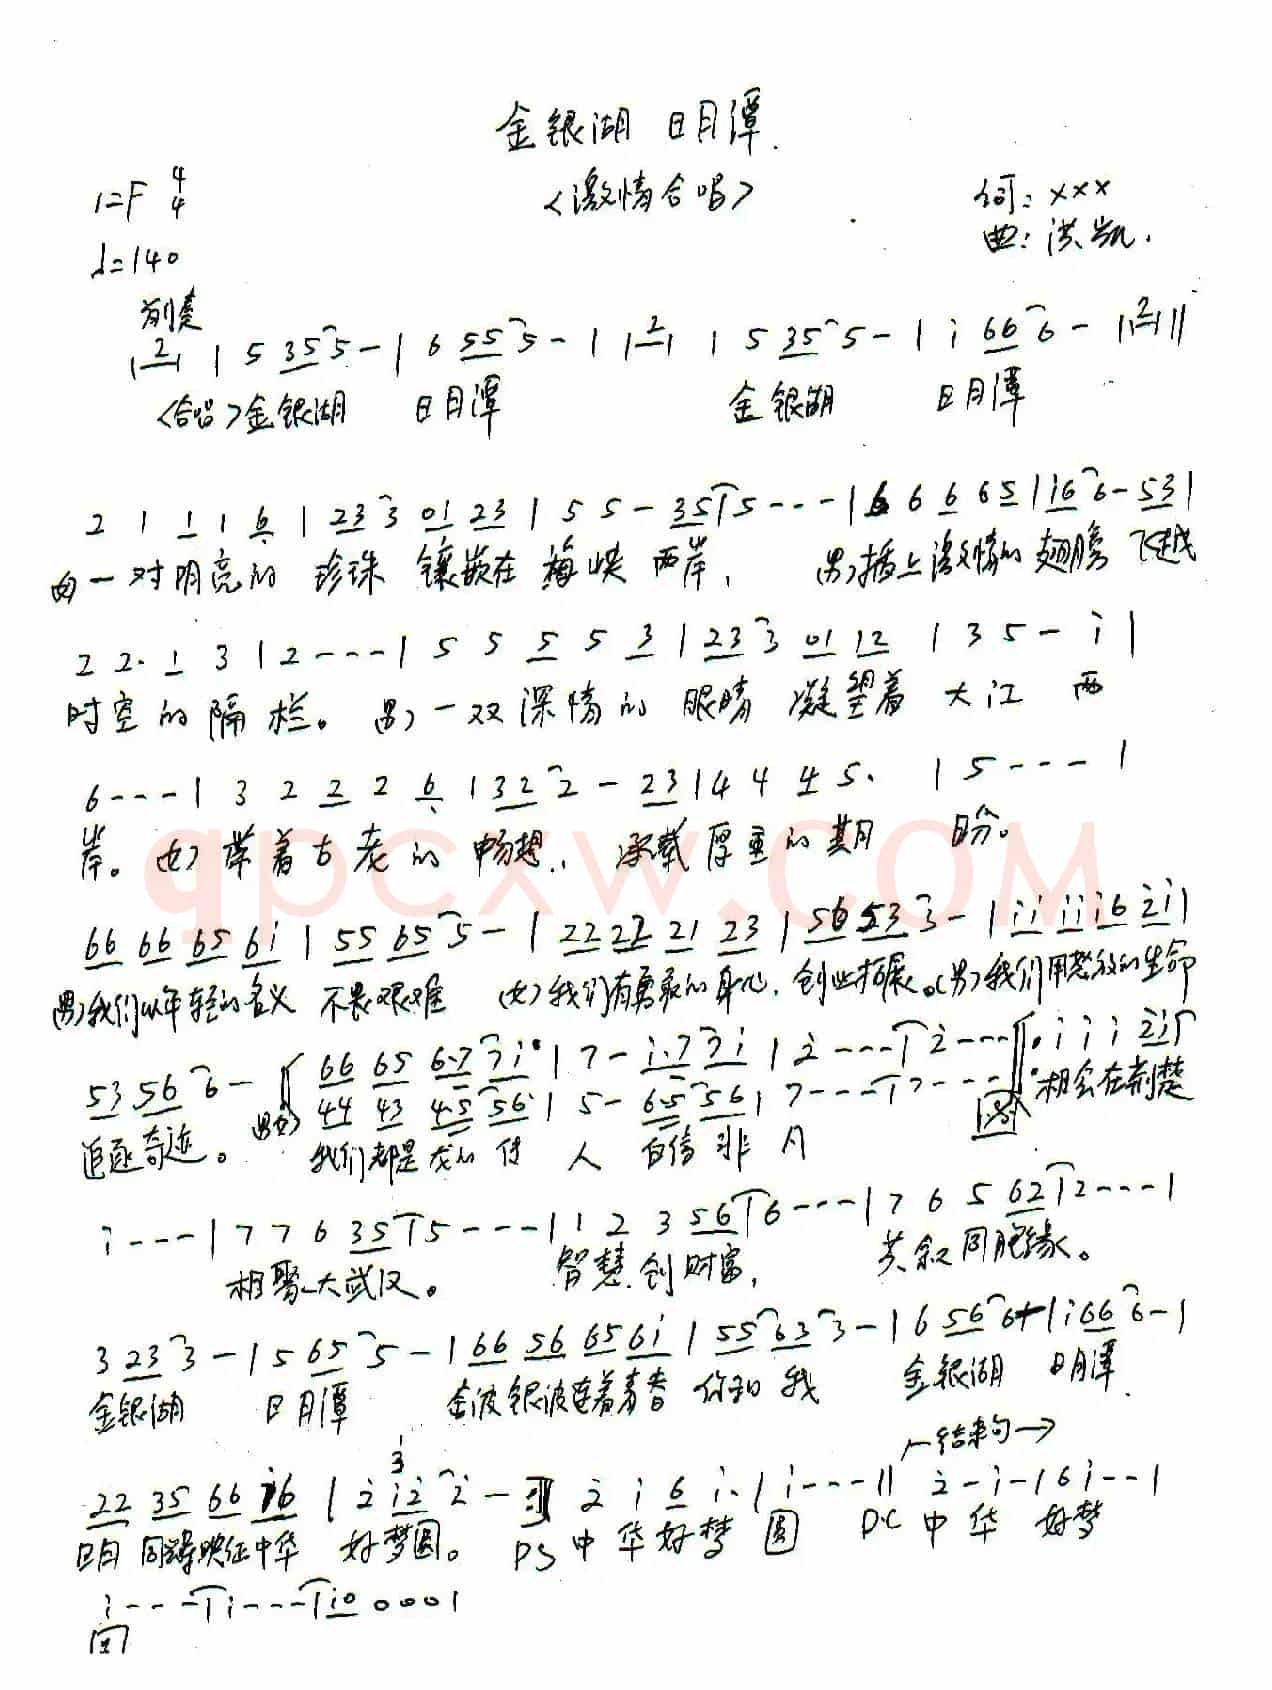 金银湖 日月潭
<激情合唱>
1=F 4/4
词: xxx
曲: 洪凯.
♩=140
前奏
|2| | 5 35 5 - | 6 55 5 - | |2| | 5 35 5 - | i 66 6 - |2||
<合唱>金银湖 日月潭 金银湖 日月潭
2 1 1 1 6 | 23 3 01 23 | 5 5 - 35 | 5 - - - | 6 6 6 6 5 | i6 6 - 53 |
一对明亮的 珍珠 镶嵌在 海峡 两岸, 男)插上激情的 翅膀 飞越
2 2. 1 3 | 2 - - - | 5 5 5 5 3 | 23 3 01 12 | 3 5 - i |
时空的隔栏。 男)一双深情的 眼睛 凝望着 大江 两
6 - - - | 3 2 2 2 6 | 32 2 - 23 | 4 4 4 5. | 5 - - - |
岸。女)带着古老的 畅想, 承载 厚重的期 盼。
66 66 65 6i | 55 65 5 - | 22 22 21 23 | 56 53 3 - | ii ii i6 2i |
男)我们以年轻的名义 不畏艰难 (女)我们有勇敢的身心, 创业拓展。(男)我们用教的生命
53 56 6 - 66 65 6.7 7i | 7 - i.7 7i | 2 - - - | 2 - - - i i i 2i
44 43 4.5 56 | 5 - 6.5 56 | 7 - - - 7 - - -
追逐奇迹。 我们都是龙的传 人 自信 非 凡 相会在荆楚
i - - - | 7 7 6 35 | 5 - - - | 1 2 3 56 | 6 - - - | 7 6 5 62 | 2 - - - |
相聚大武汉。 智慧创财富, 共叙同胞缘。
3 23 3 - | 5 65 5 - | 66 56 65 6i | 55 63 3 - | 6 56 6 | i 66 6 - |
金银湖 日月潭 金波银波连着青春 你和我 金银湖 日月潭
结束句→
22 35 66 i6 | 2 i2 2 - 2 i 6 i. | i - - - || 2 - i - | 6 i - - |
日月 同辉映征中华 好梦圆。 DS 中华好梦 圆 D.C 中 华 好梦
i - - - | i - - - | i0 0 0 0 |
圆
qpcxw.COM